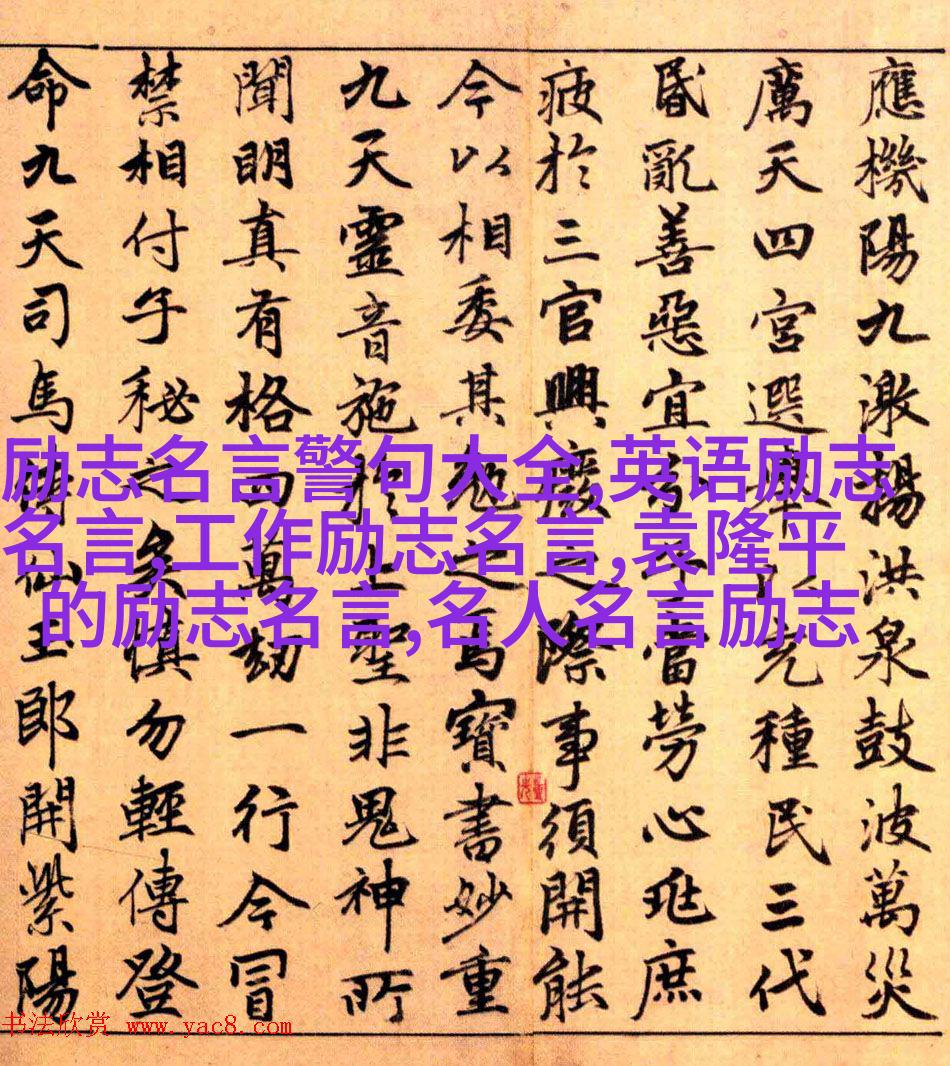 應機陽九激揚洪泉鼓波萬災
厲天四宮選舉以充種民三代
昏亂善惡宜分當勞心兆庶
疲於三官興廢之際事須開能
今以相委其勉之焉寶書妙重
九天靈音施於上聖非鬼神所
聞明真有格四萬劫一行今冒
禁相付子秘之矣慎勿輕傳登
命九天司馬侍仙王郎開紫陽
励志名言警句大全,英语励志
名言,工作励志名言,袁隆平
的励志名言,名人名言励志
书法欣赏 www.yac8.com